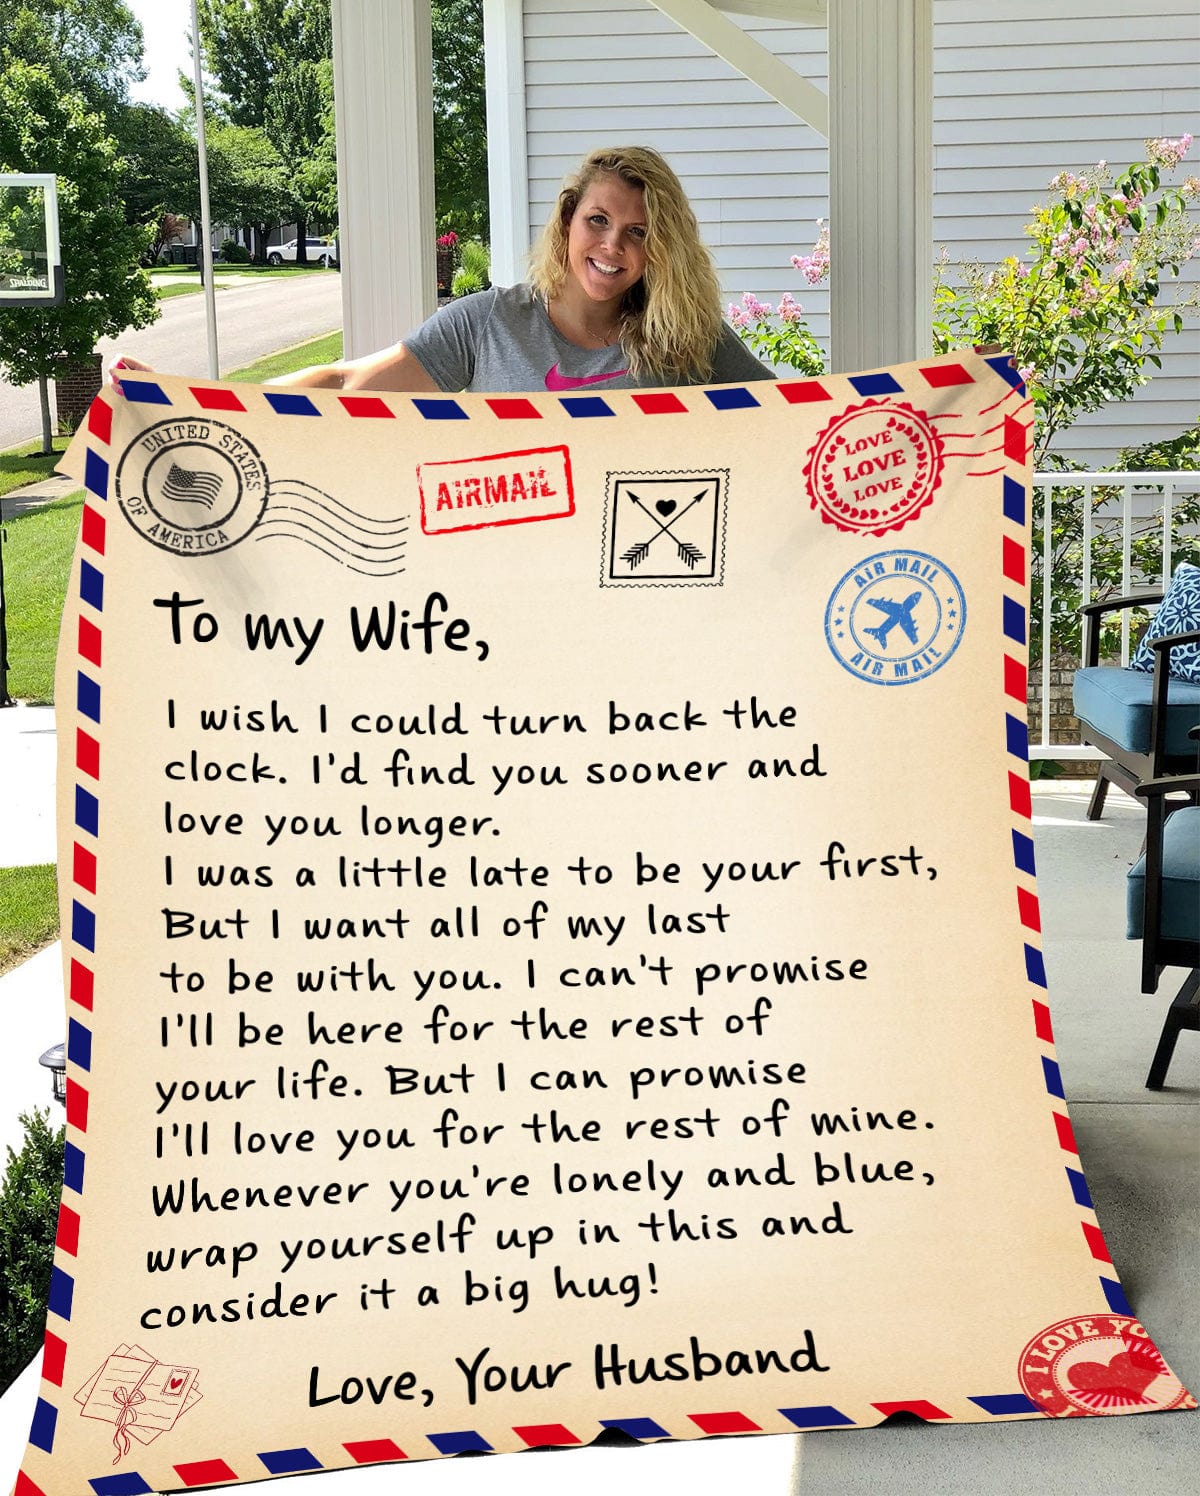 SPALDING
UNITED STATES
OF AMERICA
AIRMAIL
LOVE
LOVE
LOVE
AIR MAIL
AIR MAIL
To my Wife,
I wish I could turn back the
clock. I'd find you sooner and
love you longer.
I was a little late to be your first,
But I want all of my last
to be with you. I can't promise
I'll be here for the rest of
your life. But I can promise
I'll love you for the rest of mine.
Whenever you're lonely and blue,
wrap yourself up in this and
consider it a big hug!
Love, Your Husband
I LOVE